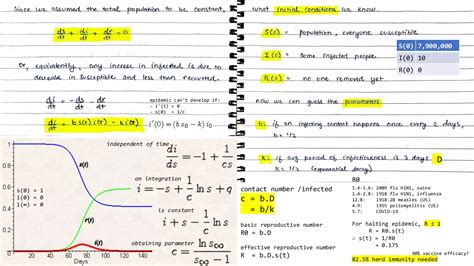 Since we assumed the total population to be constant,
ds/dt + di/dt + dr/dt = 0
or, equivalently, any increase in infected is due to
decrease in susceptible and less than recovered.
di/dt = - ds/dt - dr/dt
epidemic can't develop if:
- i'(0) < 0
- s(0) < 1/c
di/dt = b s(t) i(t) - k i(t)
i'(0) = (b s0 - k) i0
what initial conditions we know.
S(0) = population, everyone susceptible
I(0) = some infected people
R(0) = no one removed yet
S(0) 7,900,000
I(0) 10
R(0) 0
now we can guess the parameters
b: if an infecting contact happens once every 2 days,
b = 1/2
k: if avg period of infectiousness is 3 days D
k = 1/3 (exponential decay)
1
0.8
0.6
0.4
0.2
0
20 40 60 80 100 120 140
Days
s(0) = 1
i(0) = 0
i(∞) = 0
s(t)
r(t)
i(t)
independent of time
di/ds = -1 + 1/cs
on integration
i = -s + 1/c ln s + q
is constant
i + s - 1/c ln s
obtaining parameter
c = ln s∞ / s∞ - 1
contact number /infected
c = b.D
= b/k
basic reproductive number
R0 = b.D
effective reproductive number
R = b.D.s(t)
R0
1.4-1.6: 2009 flu H1N1, swine
1.4-2.8: 1918 flu H1N1, influenza
12-18: 1918-28 measles (US)
4.9: 1955 poliomyelitis (US)
5.7: COVID-19
For halting epidemic, R ≤ 1
R = R0.s(t)
∴ s(t) = 1/R0
= 0.175
90% vaccine efficacy?
82.5% herd immunity needed